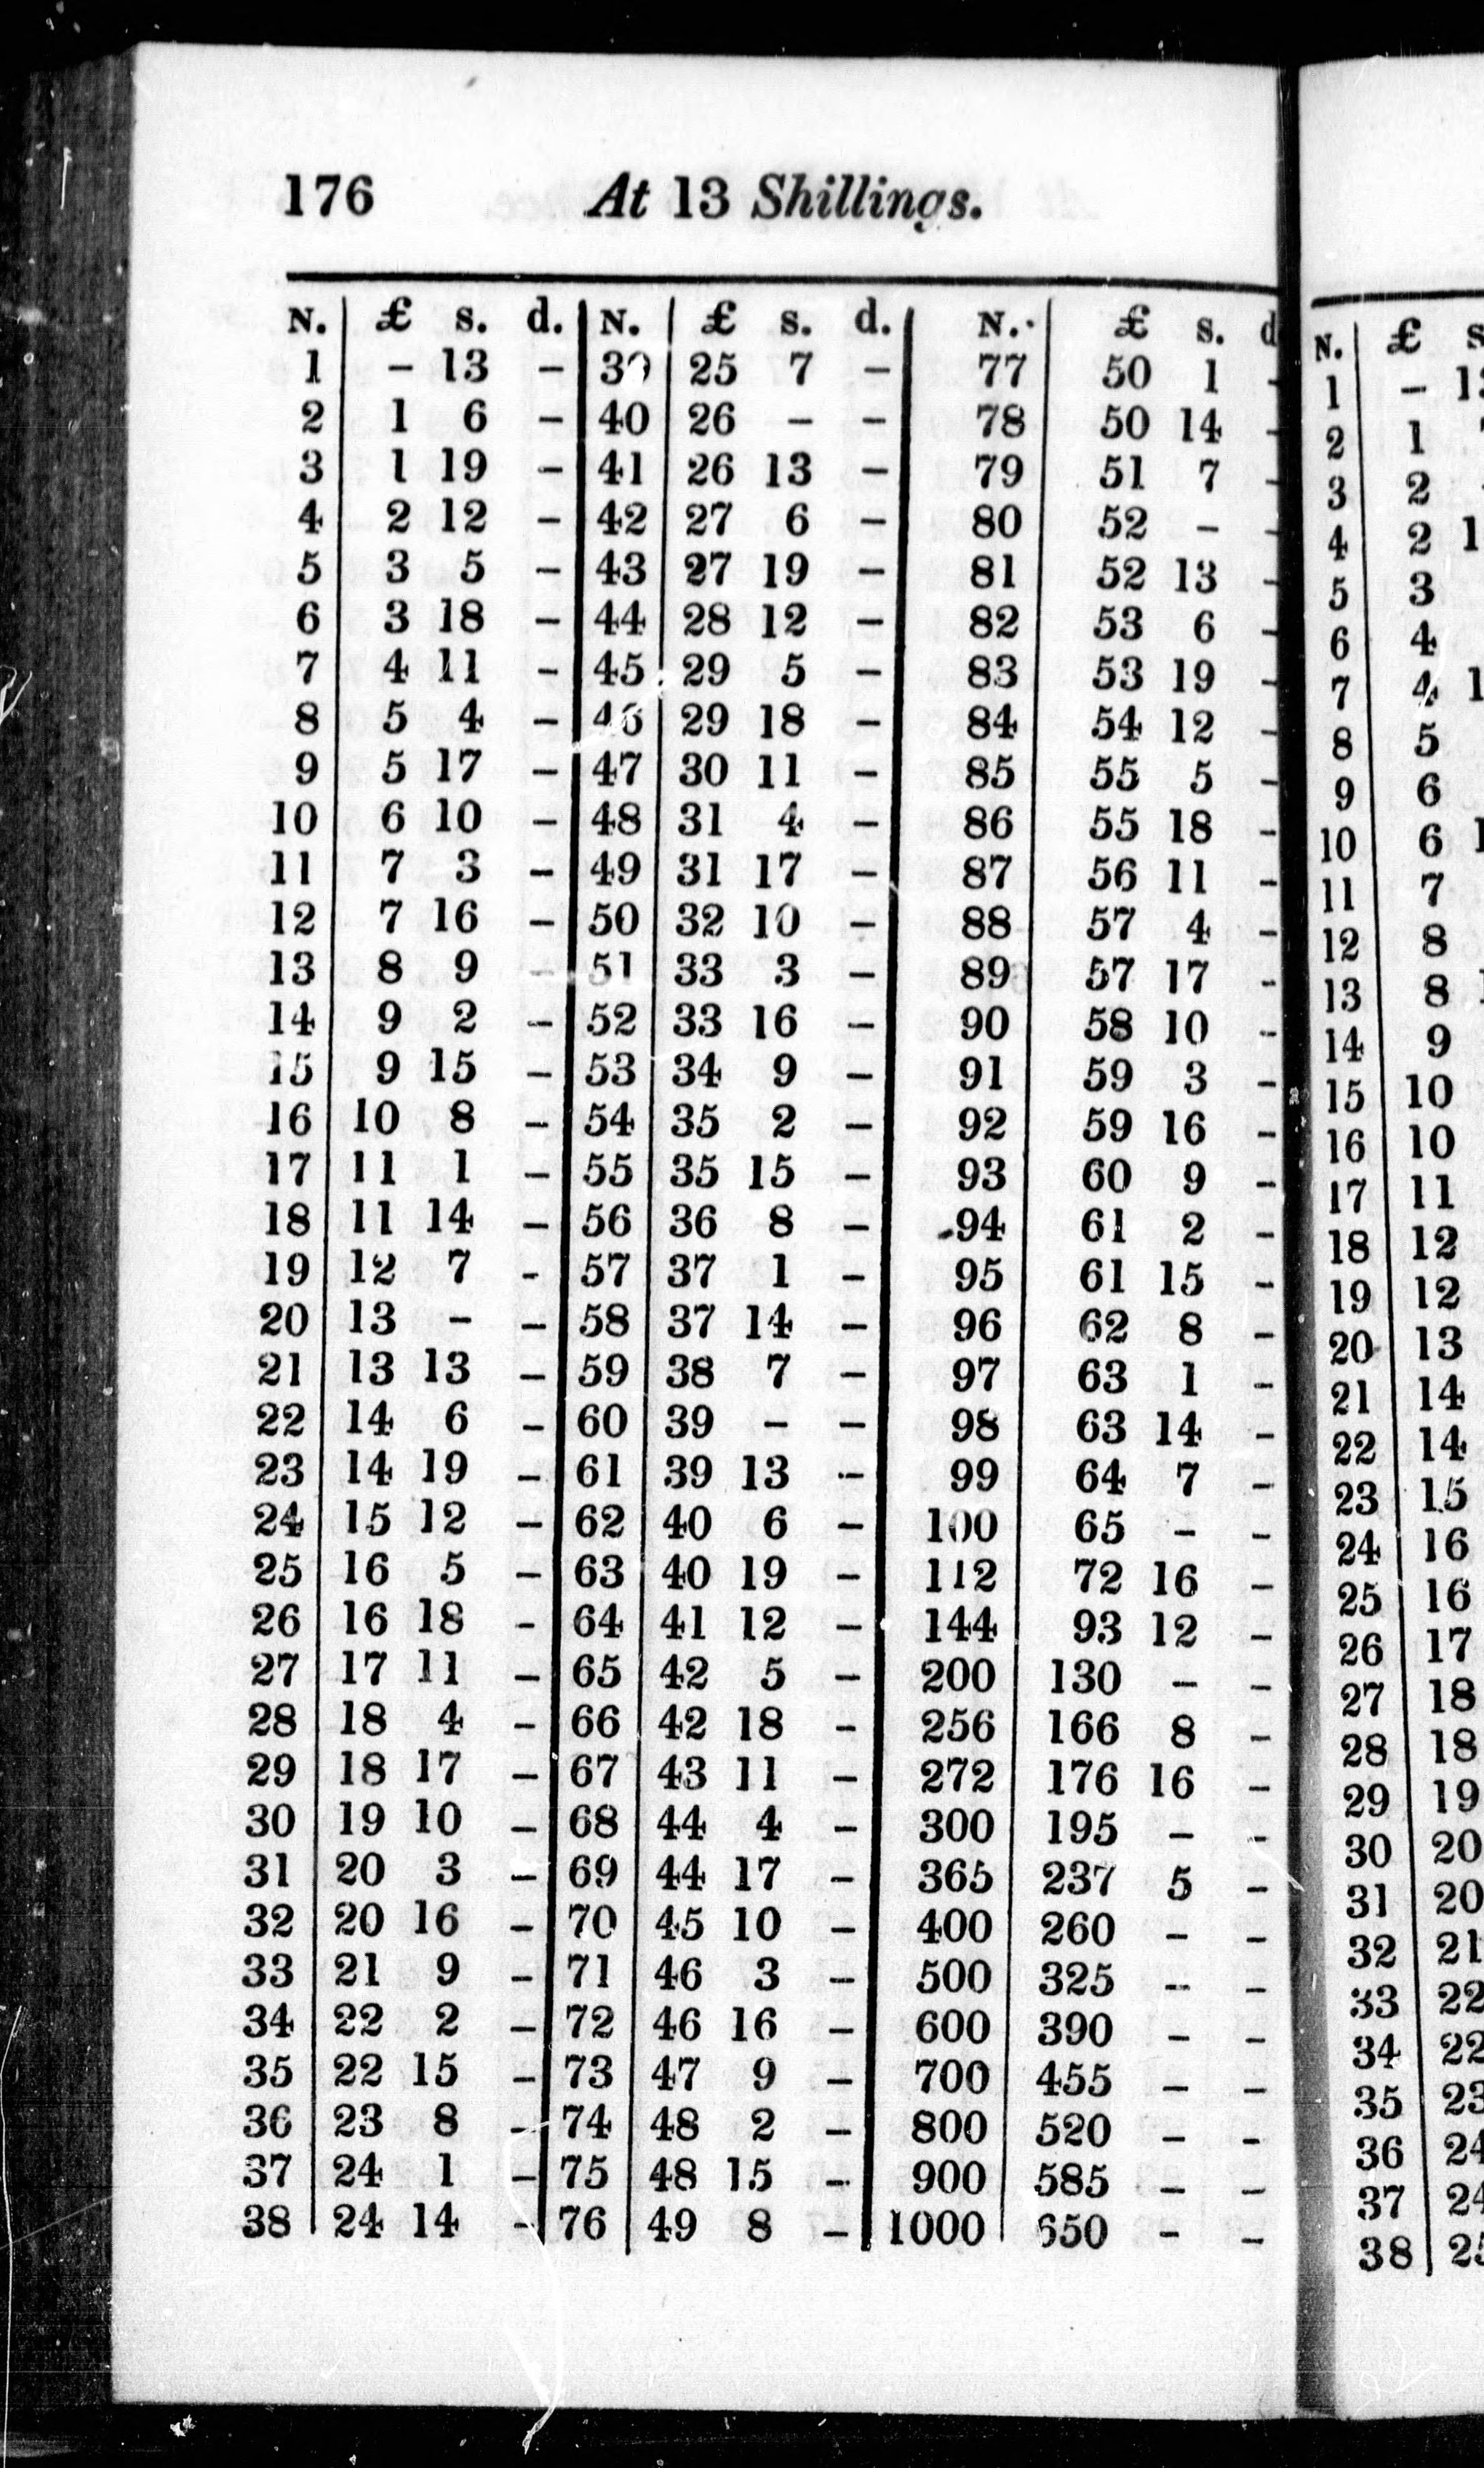 176 At 13 Shillings.
N. £ s. d. N. £ s. d. N. £ s. d
1 – 13 – 39 25 7 – 77 50 1 -
2 1 6 – 40 26 – – 78 50 14 -
3 1 19 – 41 26 13 – 79 51 7 -
4 2 12 – 42 27 6 – 80 52 – -
5 3 5 – 43 27 19 – 81 52 13 -
6 3 18 – 44 28 12 – 82 53 6 -
7 4 11 – 45 29 5 – 83 53 19 -
8 5 4 – 46 29 18 – 84 54 12 -
9 5 17 – 47 30 11 – 85 55 5 -
10 6 10 – 48 31 4 – 86 55 18 -
11 7 3 – 49 31 17 – 87 56 11 –
12 7 16 – 50 32 10 – 88 57 4 –
13 8 9 – 51 33 3 – 89 57 17 -
14 9 2 – 52 33 16 – 90 58 10 –
15 9 15 – 53 34 9 – 91 59 3 –
16 10 8 – 54 35 2 – 92 59 16 –
17 11 1 – 55 35 15 – 93 60 9 –
18 11 14 – 56 36 8 – 94 61 2 –
19 12 7 - 57 37 1 – 95 61 15 –
20 13 – – 58 37 14 – 96 62 8 –
21 13 13 – 59 38 7 – 97 63 1 –
22 14 6 – 60 39 – – 98 63 14 –
23 14 19 – 61 39 13 – 99 64 7 –
24 15 12 – 62 40 6 – 100 65 – –
25 16 5 – 63 40 19 – 112 72 16 –
26 16 18 - 64 41 12 – 144 93 12 –
27 17 11 – 65 42 5 – 200 130 – –
28 18 4 – 66 42 18 – 256 166 8 –
29 18 17 – 67 43 11 – 272 176 16 –
30 19 10 – 68 44 4 – 300 195 – –
31 20 3 – 69 44 17 – 365 237 5 –
32 20 16 – 70 45 10 – 400 260 – –
33 21 9 – 71 46 3 – 500 325 – –
34 22 2 – 72 46 16 – 600 390 – –
35 22 15 – 73 47 9 – 700 455 – –
36 23 8 – 74 48 2 – 800 520 – –
37 24 1 – 75 48 15 – 900 585 – –
38 24 14 – 76 49 8 – 1000 650 – –
N. £ s
1 –
2 1
3 2
4 2 1
5 3
6 4
7 4 1
8 5
9 6
10 6 1
11 7
12 8
13 8
14 9
15 10
16 10
17 11
18 12
19 12
20 13
21 14
22 14
23 15
24 16
25 16
26 17
27 18
28 18
29 19
30 20
31 20
32 21
33 22
34 22
35 23
36 24
37 24
38 25